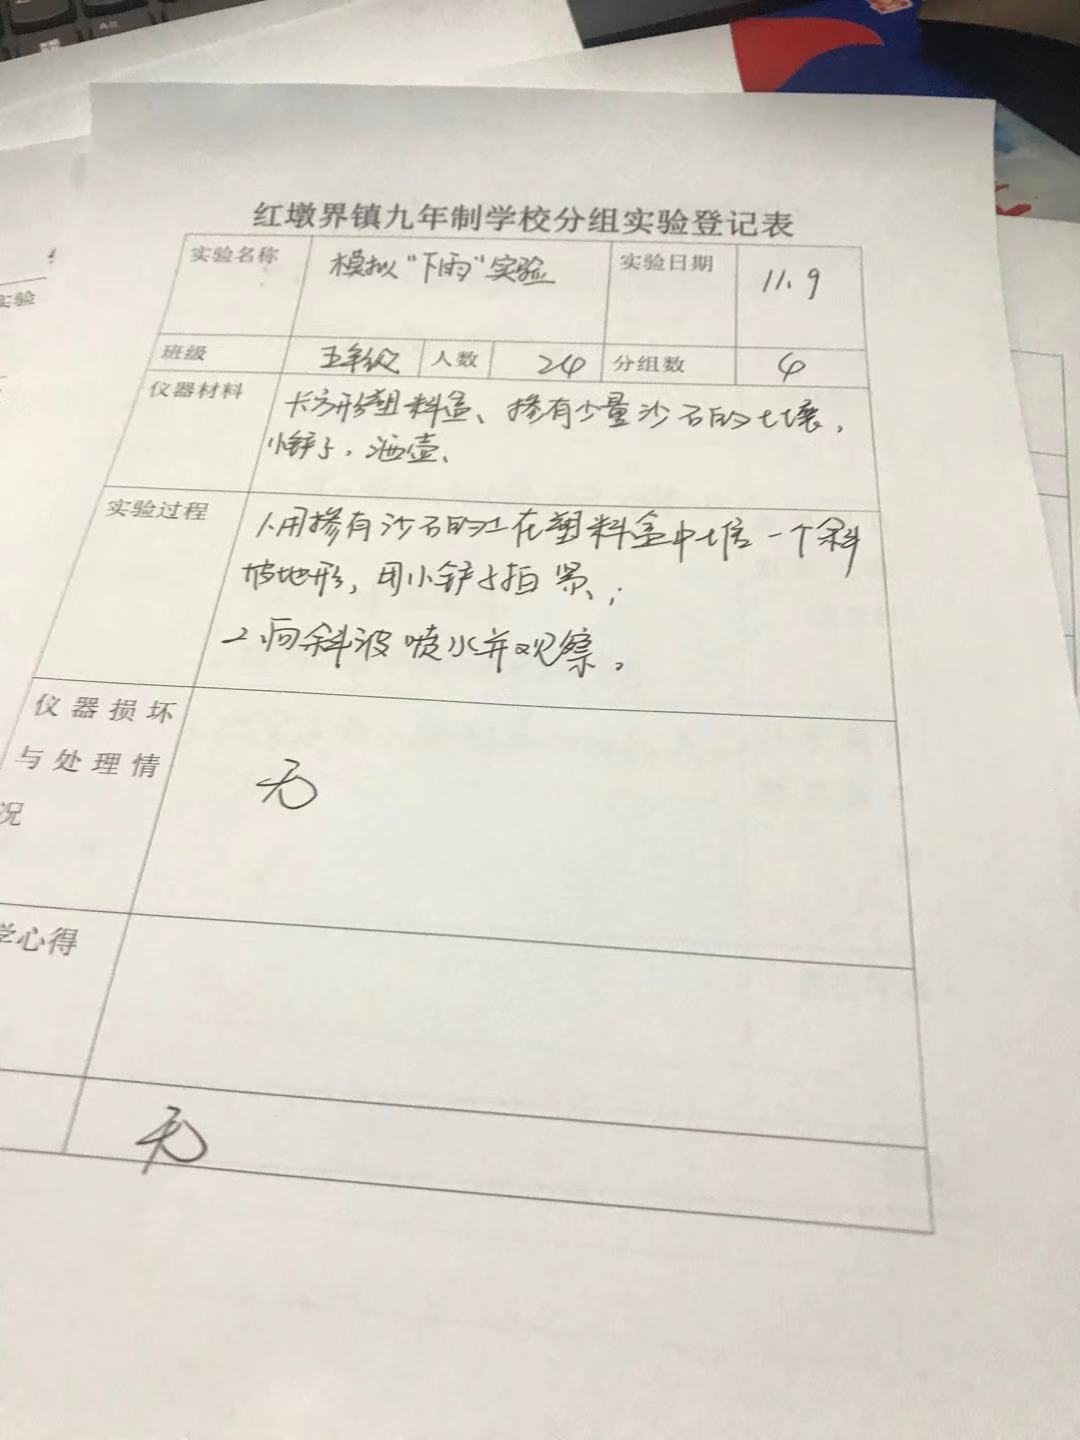 红墩界镇九年制学校分组实验登记表
实验名称 模拟“下雨”实验 实验日期 11.9
班级 五年级 人数 24 分组数 4
仪器材料 长方形塑料盒、掺有少量沙石的土壤,
小铲子、洒壶、
实验过程 1.用掺有沙石的土在塑料盒中堆一个斜
坡地形,用小铲子拍紧;
2.向斜波喷水并观察。
仪器损坏
与处理情
况
无
学心得
无
实验